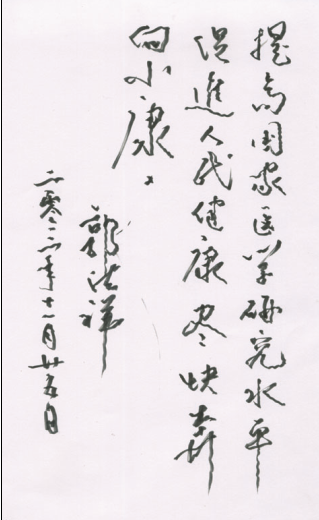 提高国家医学研究水平
促進人民健康尽快奔
向小康。
祥
二零二年十一月廿五日